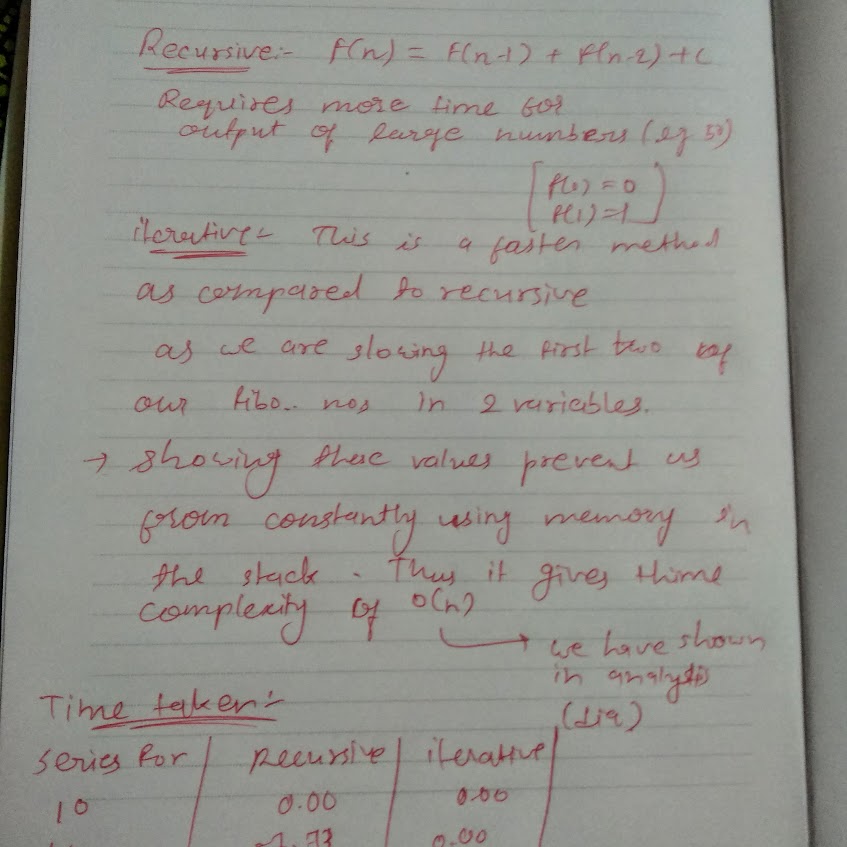 Recursive:- f(n) = f(n-1) + f(n-2) + c
Requires more time for
output of large numbers (eg 50)
f(0) = 0
f(1) = 1
iterative:- This is a faster method
as compared to recursive
as we are stowing the first two of
our fibo.. nos in 2 variables.
→ Showing these values prevent us
from constantly using memory in
the stack. Thus it gives thime
complexity of O(n)
we have shown
in analysis
Time taken:-
Series for | Recursive | iterative
10 | 0.00 | 0.00
0.00